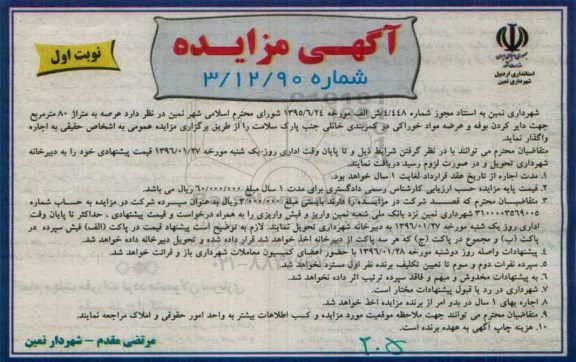 آگهی مزایده
شماره ۳/۱۲/۹۰
نوبت اول
استانداری اردبیل
شهرداری نمین
شهرداری نمین به استناد مجوز شماره ۴/۴۴۸/ش الف مورخه ۱۳۹۵/۶/۲۴ شورای محترم اسلامی شهر نمین در نظر دارد عرصه به متراژ ۸۰ مترمربع
جهت دایر کردن بوفه و عرضه مواد خوراکی در کمربندی خانلی جنب پارک سلامت را از طریق برگزاری مزایده عمومی به اشخاص حقیقی به اجاره
واگذار نماید.
متقاضیان محترم می توانند با در نظر گرفتن شرایط ذیل و تا پایان وقت اداری روز یک شنبه مورخه ۱۳۹۶/۰۱/۲۷ قیمت پیشنهادی خود را به دبیرخانه
شهرداری تحویل و در صورت لزوم رسید دریافت نمایند.
۱. مدت اجاره از تاریخ عقد قرارداد لغایت ۱ سال خواهد بود.
۲. قیمت پایه مزایده حسب ارزیابی کارشناس رسمی دادگستری برای مدت ۱ سال مبلغ ۶۰/۰۰۰/۰۰۰ ریال می باشد.
۳. متقاضیان محترم که قصد شرکت در مزایده را دارند بایستی مبلغ ۳/۰۰۰/۰۰۰ ریال به عنوان سپرده شرکت در مزایده به حساب شماره
۳۱۰۰۰۰۳۵۶۹۰۰۵ شهرداری نمین نزد بانک ملی شعبه نمین واریز و فیش واریزی را به همراه درخواست و قیمت پیشنهادی ، حداکثر تا پایان وقت
اداری روز یک شنبه مورخه ۱۳۹۶/۰۱/۲۷ به دبیرخانه شهرداری تحویل نمایند. لازم به توضیح است پیشنهاد قیمت در پاکت (الف) فیش سپرده در
پاکت (ب) و مجموع در پاکت (ج) که هر سه پاکت از دبیرخانه اخذ خواهد شد قرار داده شده و تحویل دبیرخانه داده خواهد شد.
۴. پیشنهادات واصله روز دوشنبه مورخه ۱۳۹۶/۰۱/۲۸ با حضور اعضای کمیسیون معاملات شهرداری باز و قرائت خواهد شد.
۵. سپرده نفرات دوم و سوم تا تعیین تکلیف برنده نفر اول مسترد نخواهد شد.
۶. به پیشنهادات مخدوش و مبهم و فاقد سپرده ترتیب اثر داده نخواهد شد.
۷. شهرداری در رد یا قبول پیشنهادات مختار است.
۸. اجاره بهای ۱ سال در بدو امر از برنده مزایده اخذ خواهد شد.
۹. متقاضیان محترم می توانند جهت ملاحظه موقعیت مورد مزایده و کسب اطلاعات بیشتر به واحد امور حقوقی و املاک مراجعه نمایند.
۱۰. هزینه چاپ آگهی به عهده برنده است.
مرتضی مقدم – شهردار نمین
۲۰۵